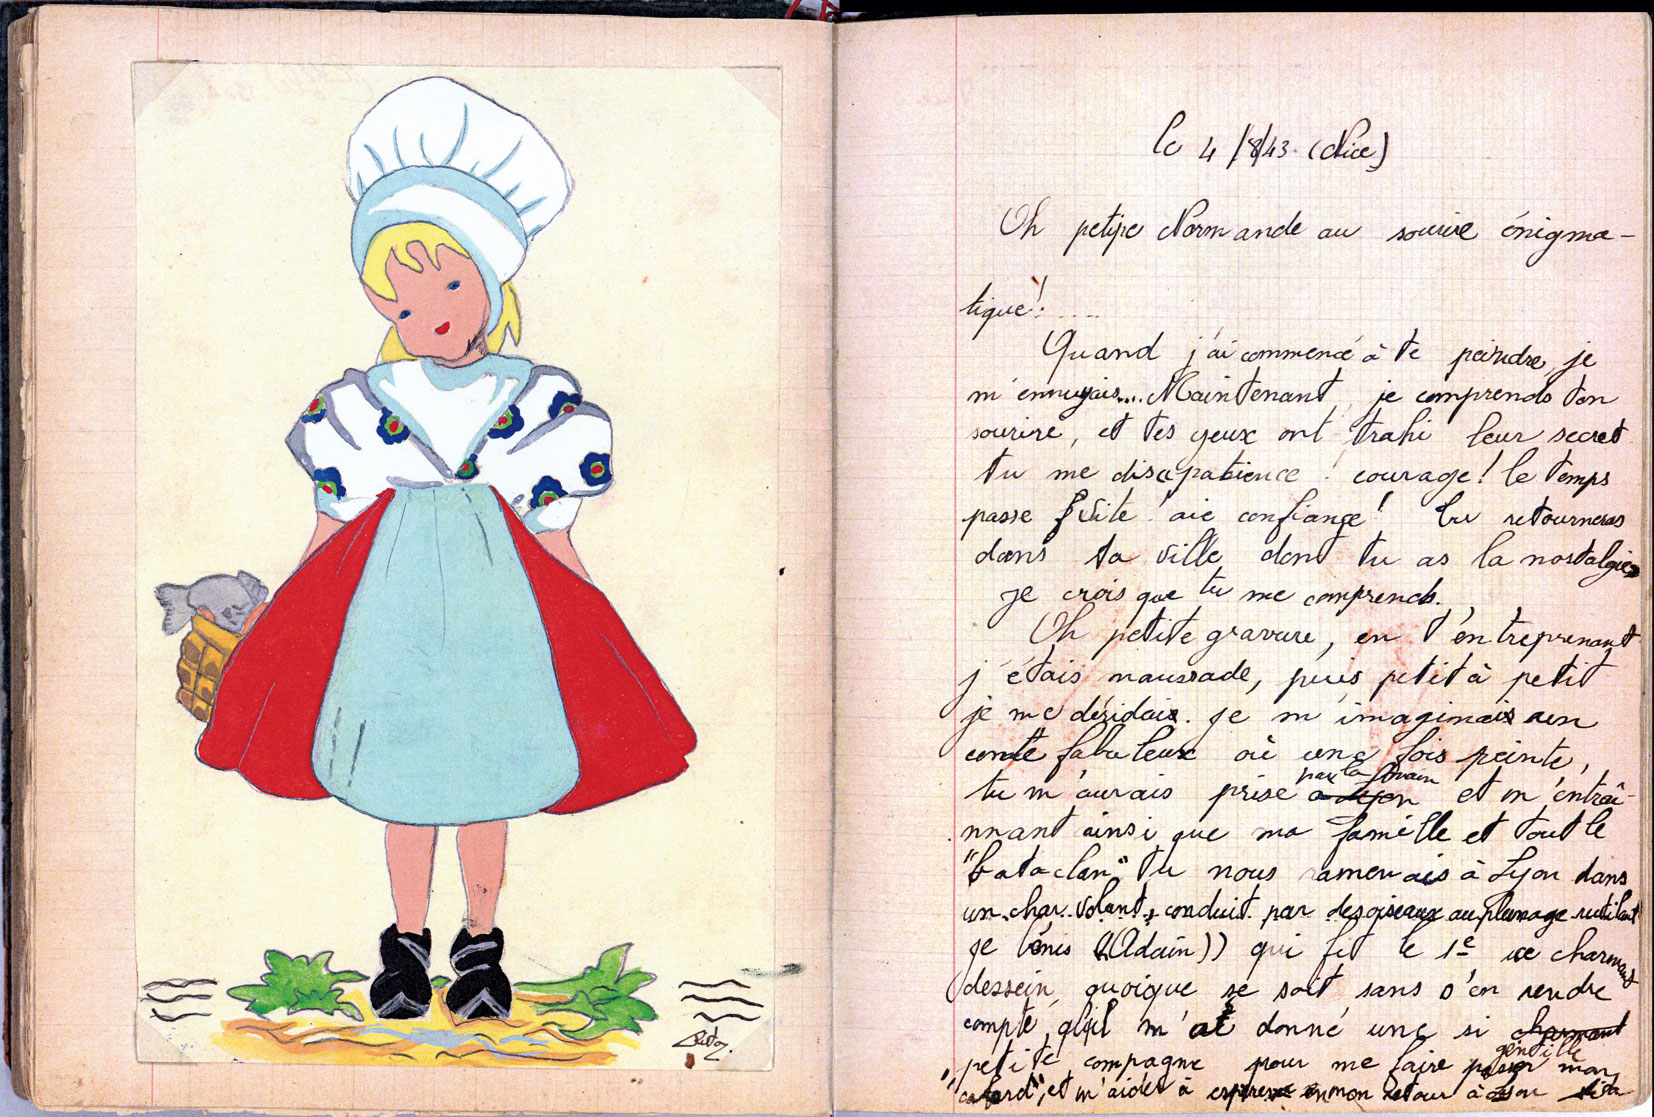 le 4/8/43. (Nice)
Oh petipe Normande au sourire énigma-
tique!....
Quand j'ai commencé à te peindre, je
m'ennuyais.... Maintenant, je comprends ton
sourire, et tes yeux ont trahi leur secret
tu me dis : patience ! courage ! le temps
passe vite ! aie confiance ! tu retourneras
dans ta ville dont tu as la nostalgie
je crois que tu me comprends.
Oh petite gravure, en t'entreprenant
j'étais maussade, puis petit à petit
je me déridais. je m'imaginais un
conte fabuleux où une fois peinte,
par la main
tu m'aurais prise et m'entraî-
nnant ainsi que ma famille et tout le
"bataclan" tu nous ramenais à Lyon dans
un char volant, conduit par des oiseaux au plumage rutilant
je bénis ((Adain)) qui fit le 1e ce charmant
dessein, quoique se soit sans s'en rendre
compte, qu'il m'ait donné une si charmant
gentille
petite compagne pour me faire passer mon
"cafard", et m'aider à espérer en mon retour à Lyon